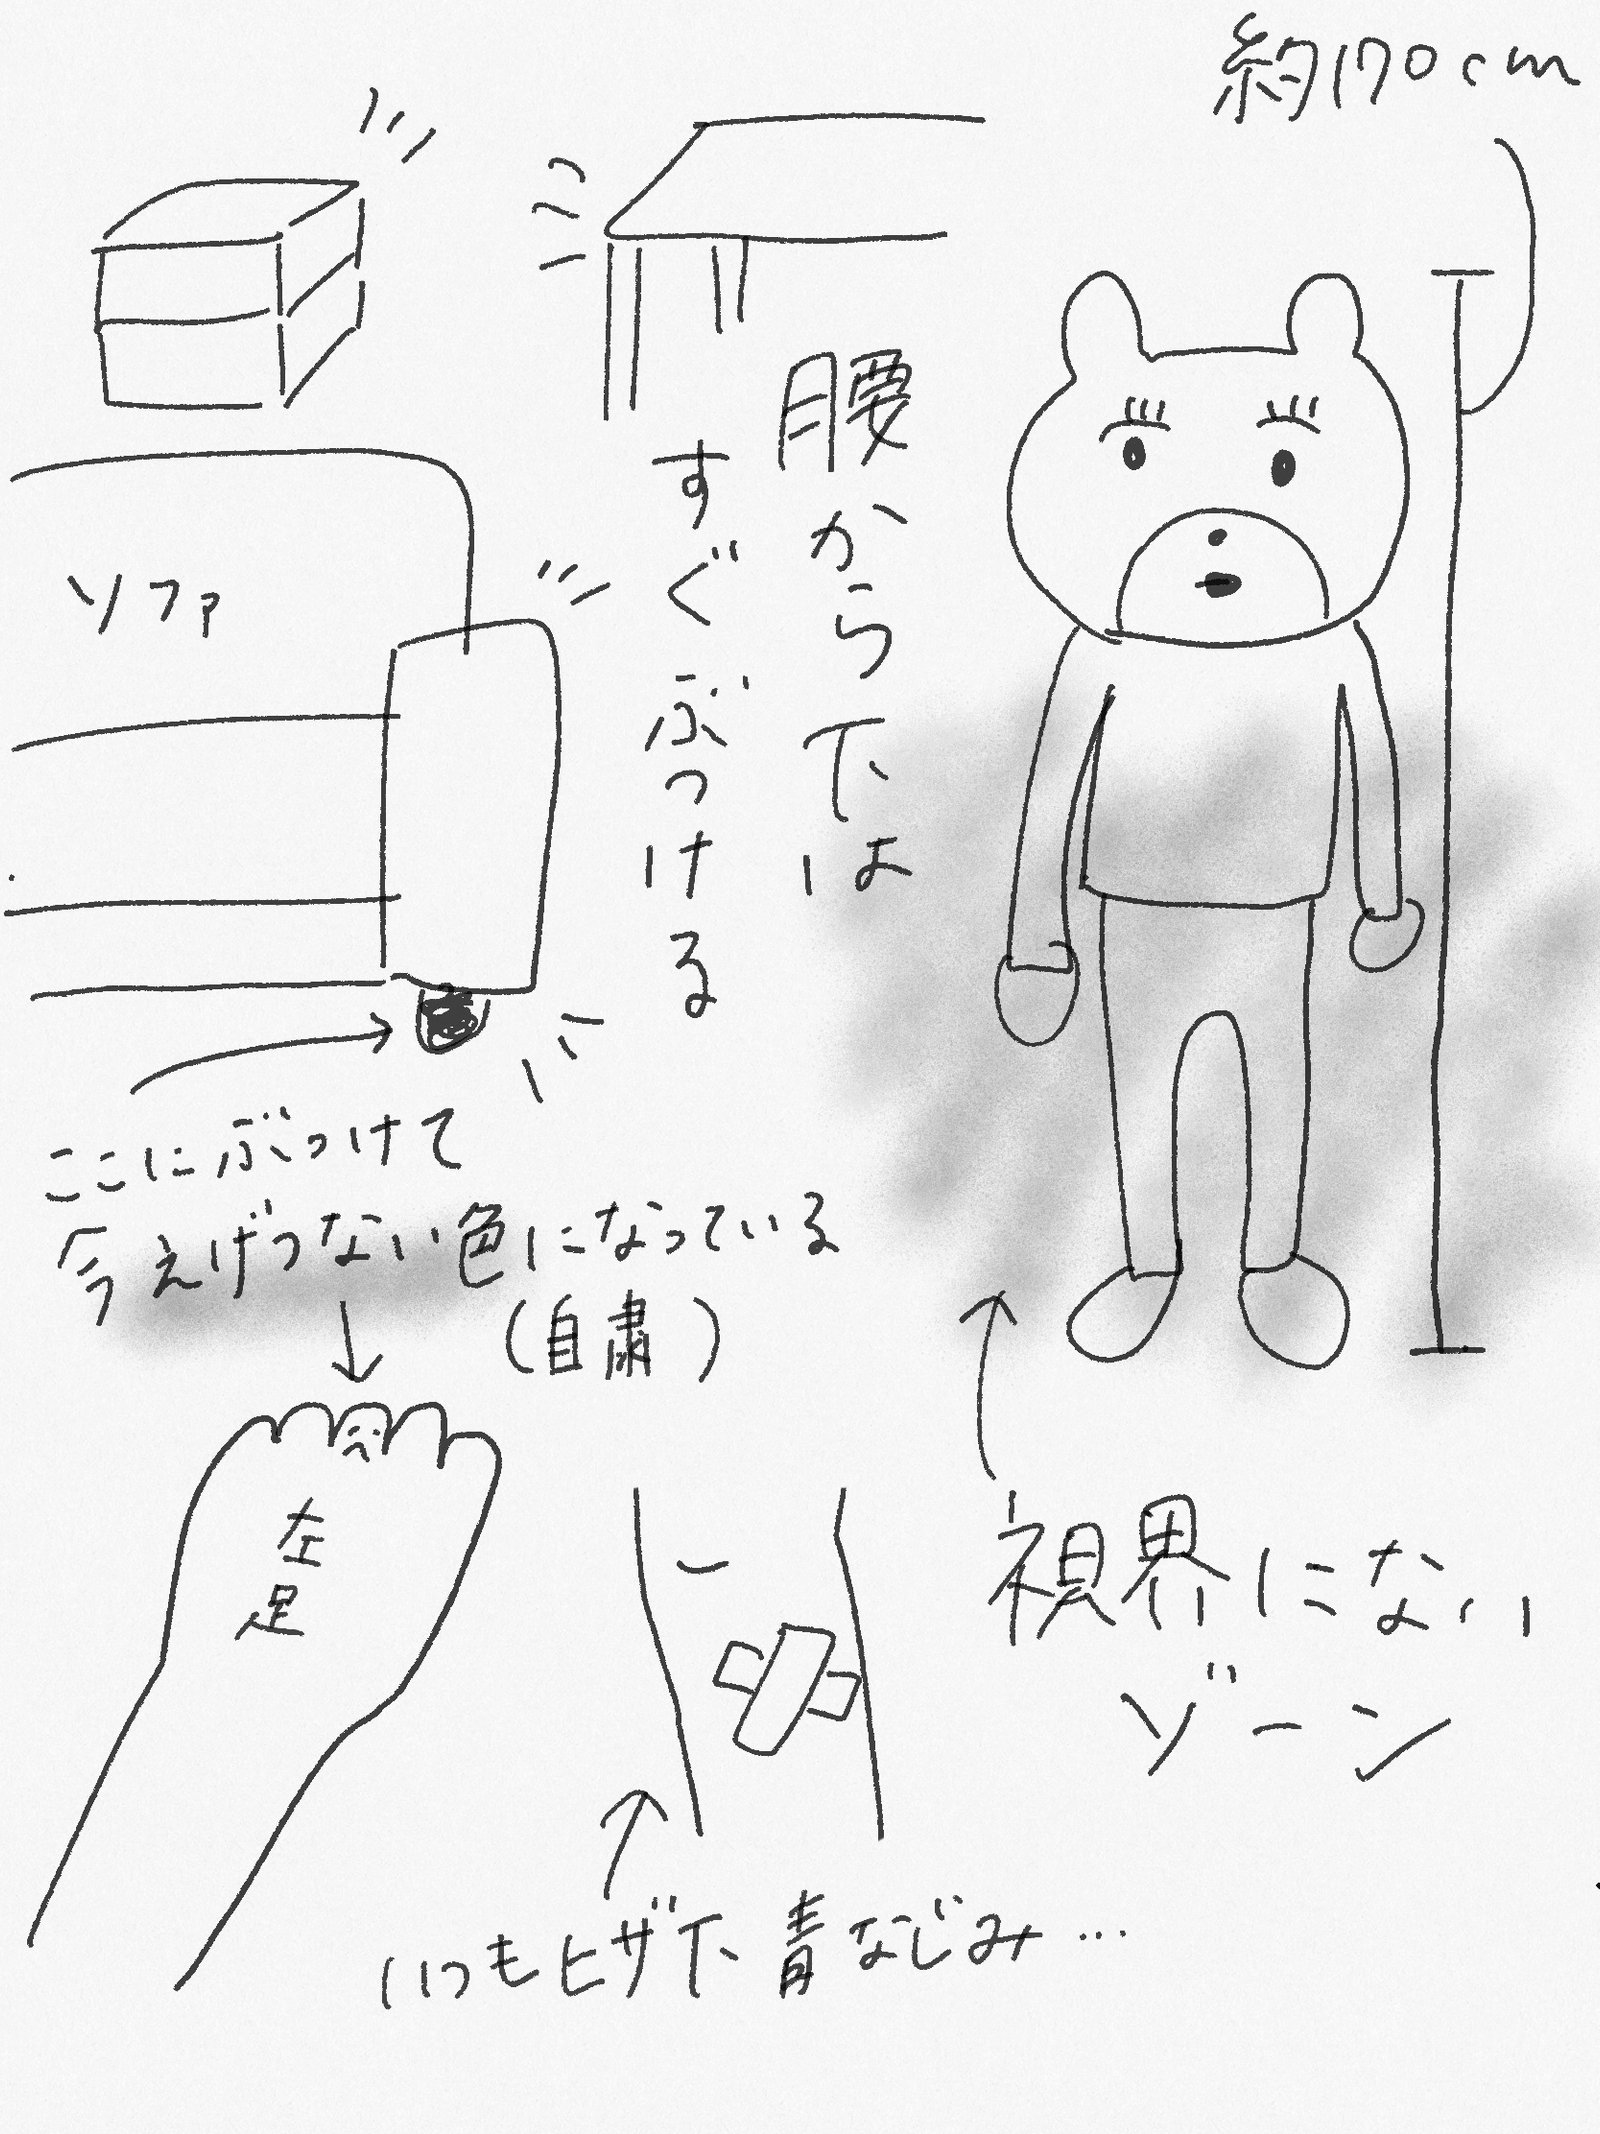 約170cm
腰から下は
すぐぶつける
ソファ
ここにぶつけて
今えげつない色になっている
(自粛)
左足
視界にない
ゾーン
いつもヒザ下青なじみ…